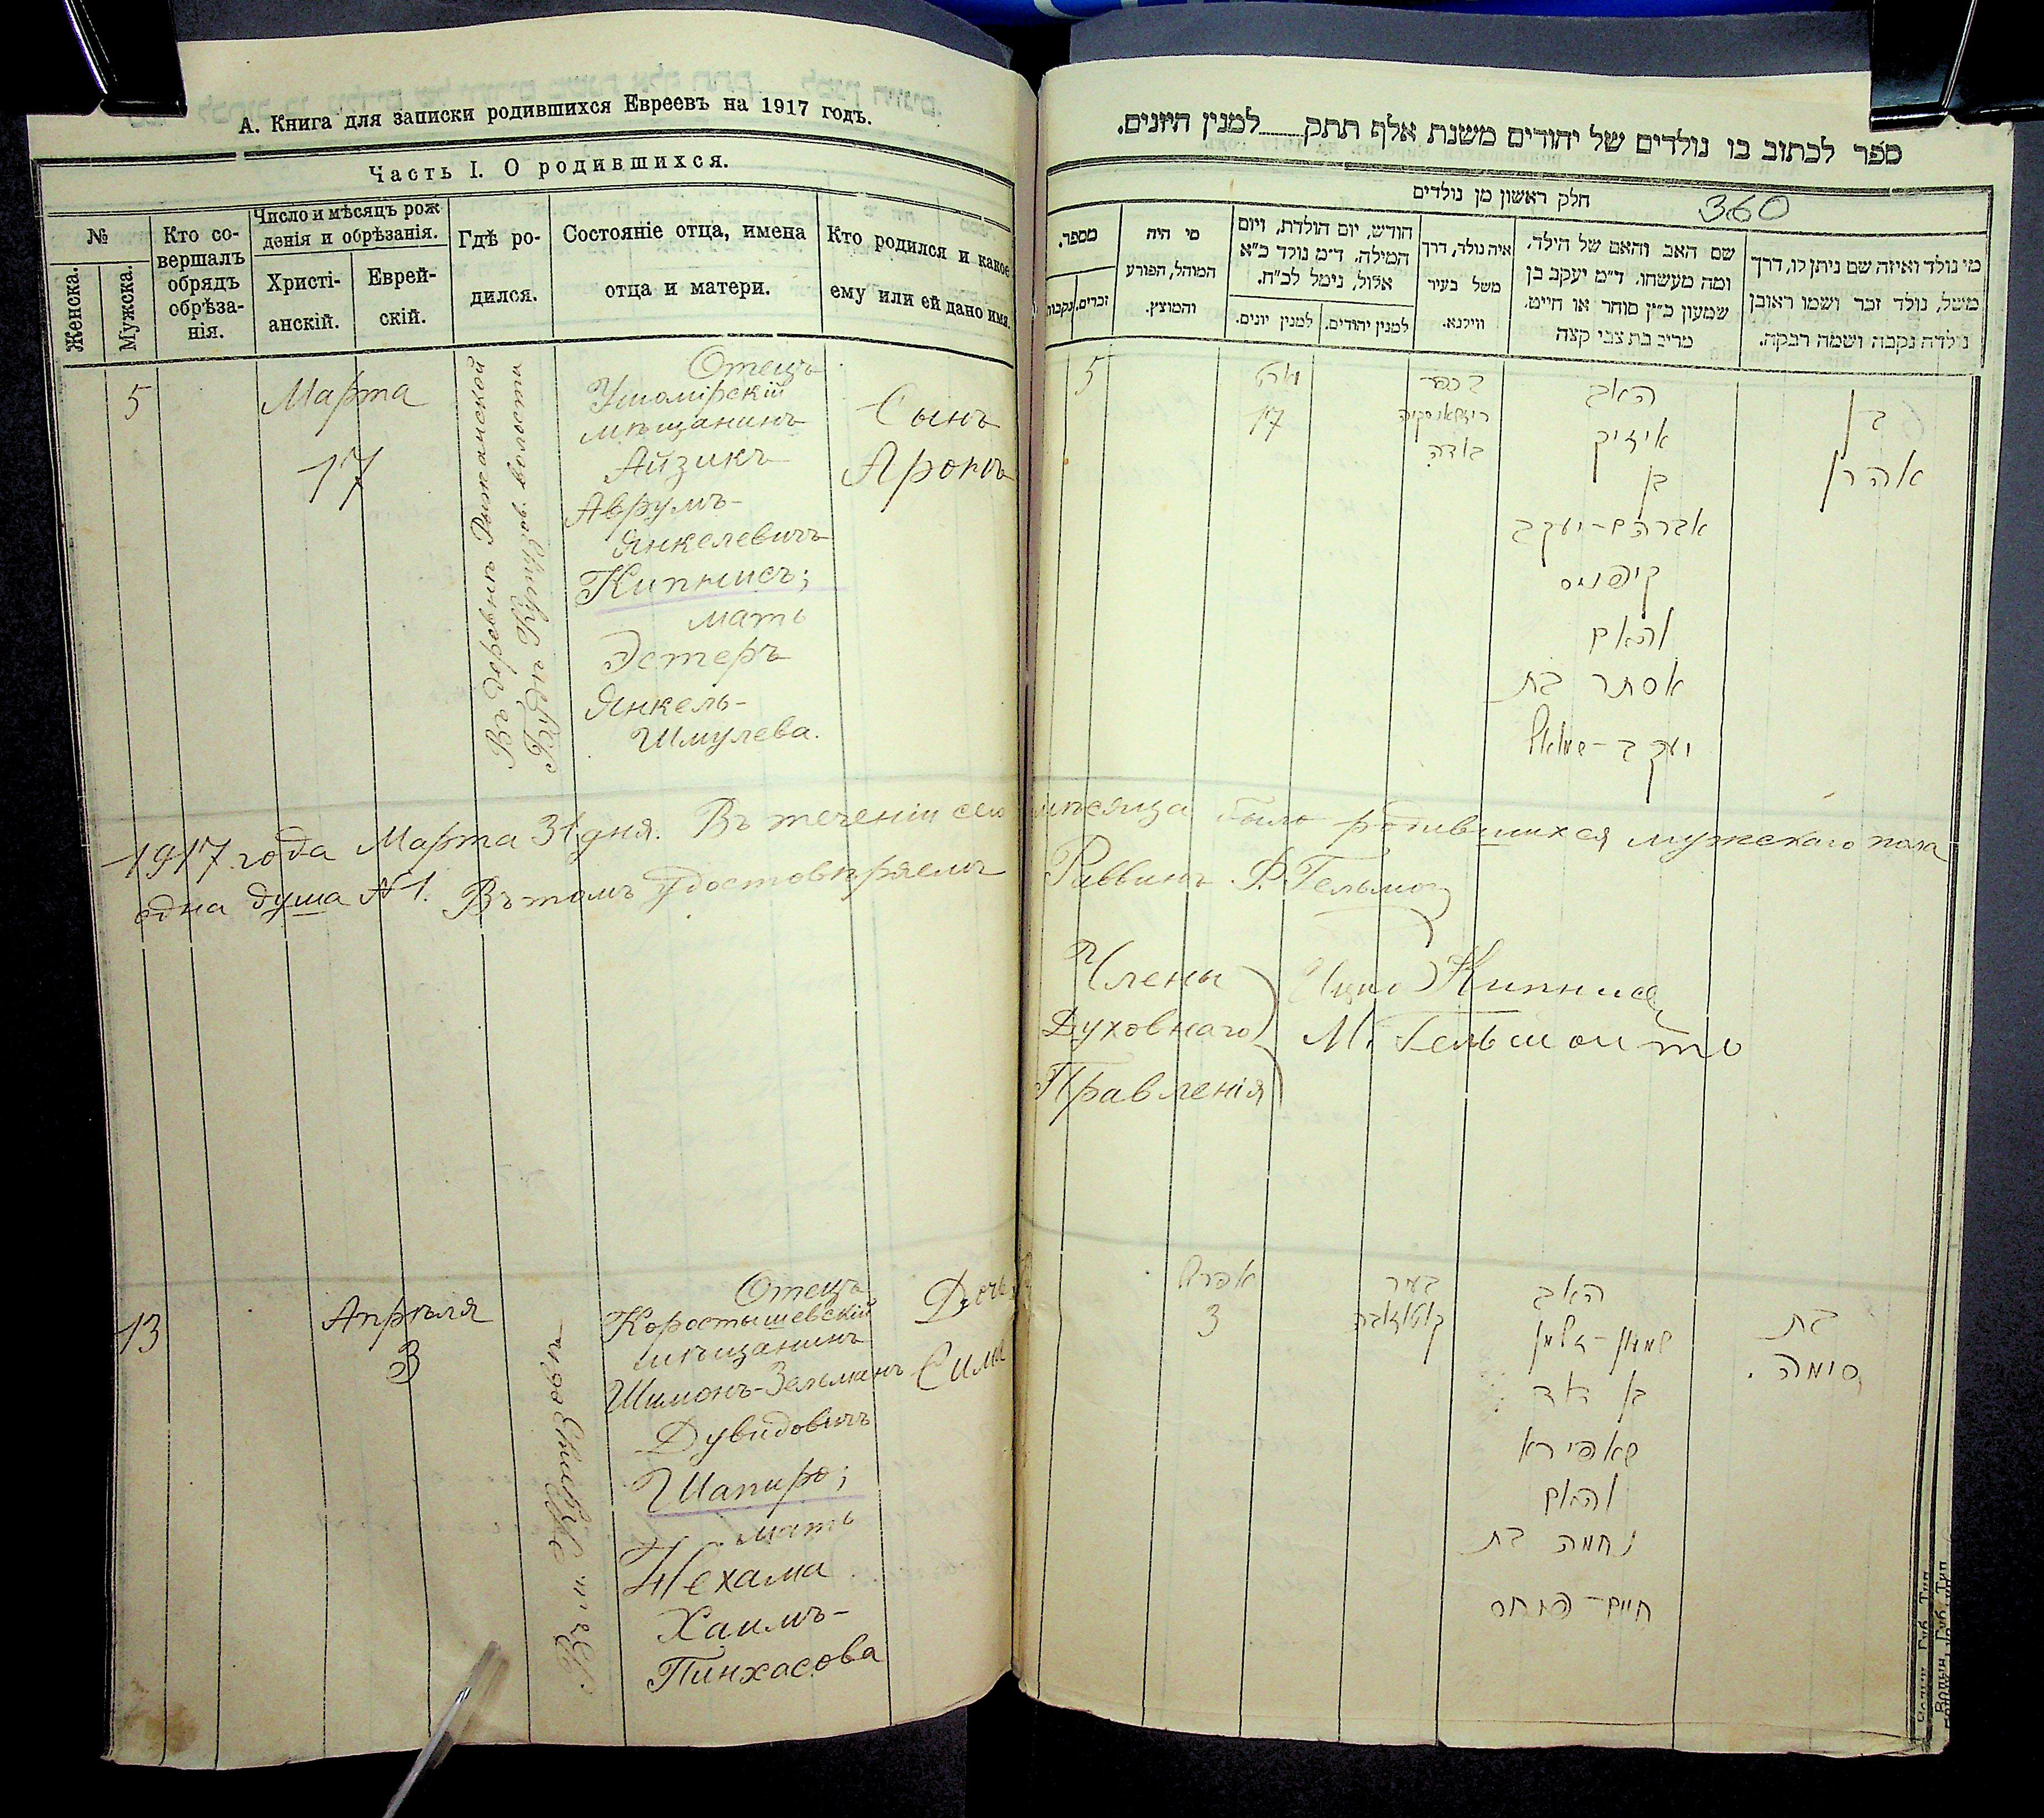 А. Книга для записки родившихся Евреевъ на 1917 годъ.
Часть I. О родившихся.
№
Женска.
Мужска.
Кто со-
вершалъ
обрядъ
обрѣза-
нія.
Число и мѣсяцъ рож
денія и обрѣзанія.
Христі-
анскій.
Еврей-
скій.
Гдѣ ро-
дился.
Состояніе отца, имена
отца и матери.
Кто родился и какое
ему или ей дано имя.
5
Марта
17
Въ деревнѣ Рижанской
волости
Отецъ
Ушомірскій
мѣщанинъ
Айзикъ
Аврумъ-
Янкелевичъ
Кипнисъ;
мать
Эстеръ
Янкель-
Шмулева.
Сынъ
Аронъ
1917 года Марта 31 дня. Въ теченіи сего мѣсяца было родившихся мужскаго пола
одна душа №1. Въ томъ удостовѣряемъ
13
Апрѣля
3
Отецъ
Коростышевскій
мѣщанинъ
Шимонъ-Зельманъ
Дувидовичъ
Шапиро;
мать
Нехама
Хаимъ-
Пинхасова
Дочь
Сима
ספר לכתוב בו נולדים של יהודים משנת אלף תתק למנין היונים.
חלק ראשון מן נולדים
360
מספר.
זכרים.
נקבות
מי היה
המוהל, הפורע
והמוצץ.
חודש, יום הולדת, ויום
המילה. ד״מ נולד כ״א
אלול, נימל לכ״ח.
למנין יונים.
למנין יהודים.
איה נולד, דרך
משל בעיר
ווילנא.
שם האב והאם של הילד.
ומה מעשהו. ד״מ יעקב בן
שמעון כ״ץ סוחר או חייט.
מרים בת צבי קצה
מי נולד ואיזה שם ניתן לו, דרך
משל, נולד זכר ושמו ראובן
נולדה נקבה ושמה רבקה.
5
מארט
17
בכפר
האב
אייזיק
בן
אברהם-יעקב
קיפניס
והאם
אסתר בת
יעקב-שמואל
בן
אהרן
Раввинъ
Члены
Духовнаго
Правленія
Кипнисъ
М.
אפריל
3
בעיר
האב
שמעון-זלמן
בן דוד
שאפירא
והאם
נחמה בת
חיים-פנחס
בת
סימה.